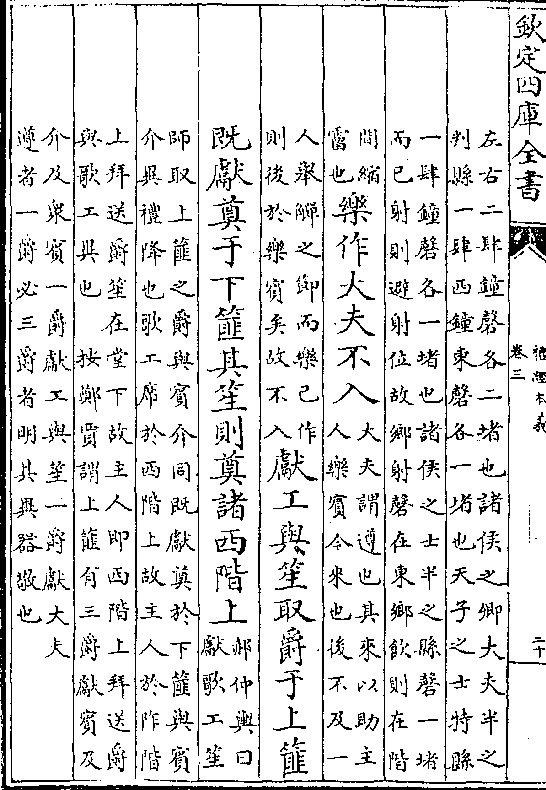 欽定四庫全書
禮經本義
卷三
二十
左右二肆鐘磬各二堵也諸侯之卿大夫半之
判縣一肆西鐘東磬各一堵也天子之士特縣
一肆鐘磬各一堵也諸侯之士半之縣磬一堵
而已射則避射位故鄉射磬在東鄉飲則在階
間縮
霤也
樂作大夫不入
大夫謂遵也其來以助主
人樂賓今來也後不及一
人舉觶之節而樂已作
則後於樂賓矣故不入
獻工與笙取爵于上篚
既獻奠于下篚其笙則奠諸西階上
郝仲輿曰
獻歌工笙
師取上篚之爵與賓介同既獻奠於下篚與賓
介異禮降也歌工席於西階上故主人於阼階
上拜送爵笙在堂下故主人即西階上拜送爵
與歌工異也 按鄭賈謂上篚有三爵獻賓及
介及衆賓一爵獻工與笙一爵獻大夫
遵者一爵必三爵者明其異器敬也